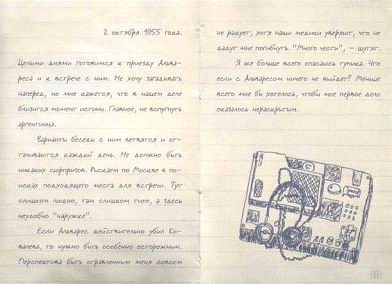 2 октября 1955 года.
Целыми днями готовимся к приезду Альва-
реса и к встрече с ним. Не хочу загадывать
наперед, но мне кажется, что в нашем деле
близится момент истины. Главное, не вспугнуть
аргентинца.
Варианты беседы с ним ветвятся и от-
тачиваются каждый день. Не должно быть
никаких сюрпризов. Рыскаем по Москве в по-
исках подходящего места для встречи. Тут
слишком людно, там слишком тихо, а здесь
неудобно "наружке".
Если Альварес действительно убил Ко-
валева, то нужно быть особенно осторожным.
Перспектива быть отравленным меня совсем
не радует, хотя наши медики уверяют, что не
дадут мне погибнуть. "Много чести", – шутят.
Я же больше всего опасаюсь тупика. Что
если с Альваресом ничего не выйдет? Меньше
всего мне бы хотелось, чтобы мое первое дело
оказалось нераскрытым.